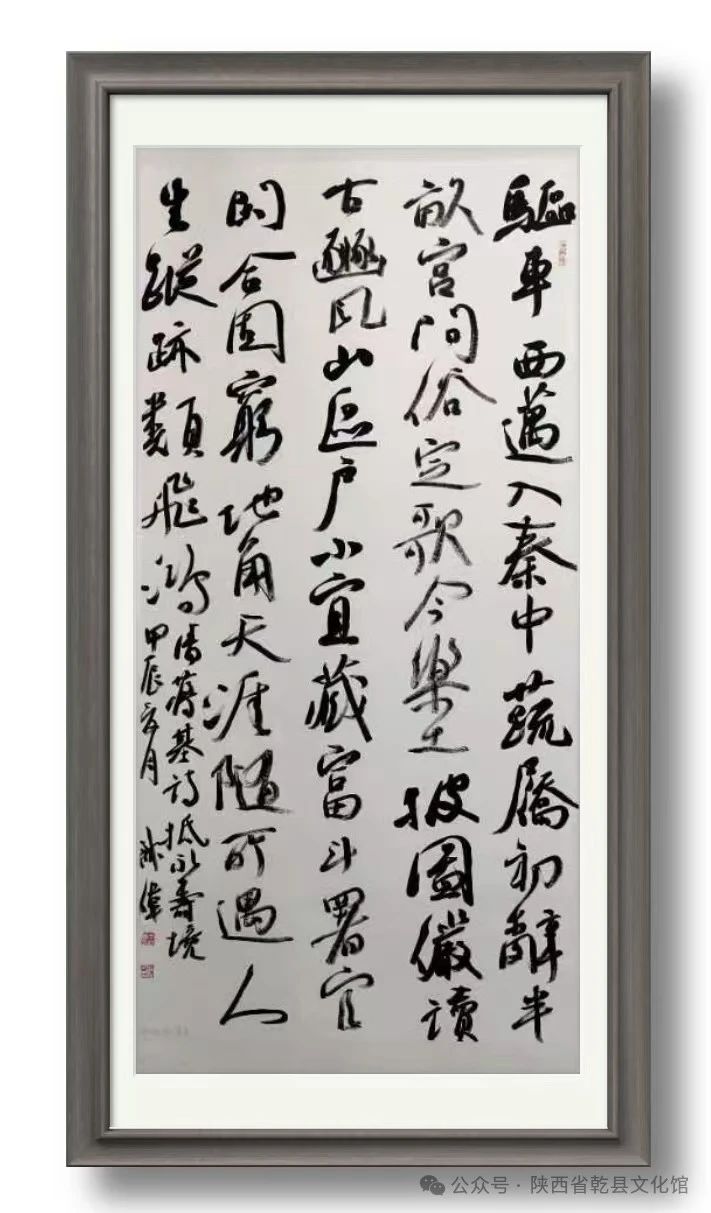 驅車西邁入秦中蔬屩初辭半
畝宮問俗定歌今樂土披圖儼讀
古豳風山區戶小宜藏富斗署官
閒合固窮地角天涯隨所遇人
生蹤跡類飛鴻清蔣基詩抵永壽境
甲辰夏月
公众号 · 陕西省乾县文化馆